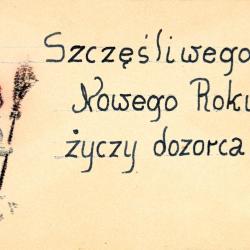 Szczęśliwego
Nowego Roku
życzy dozorca